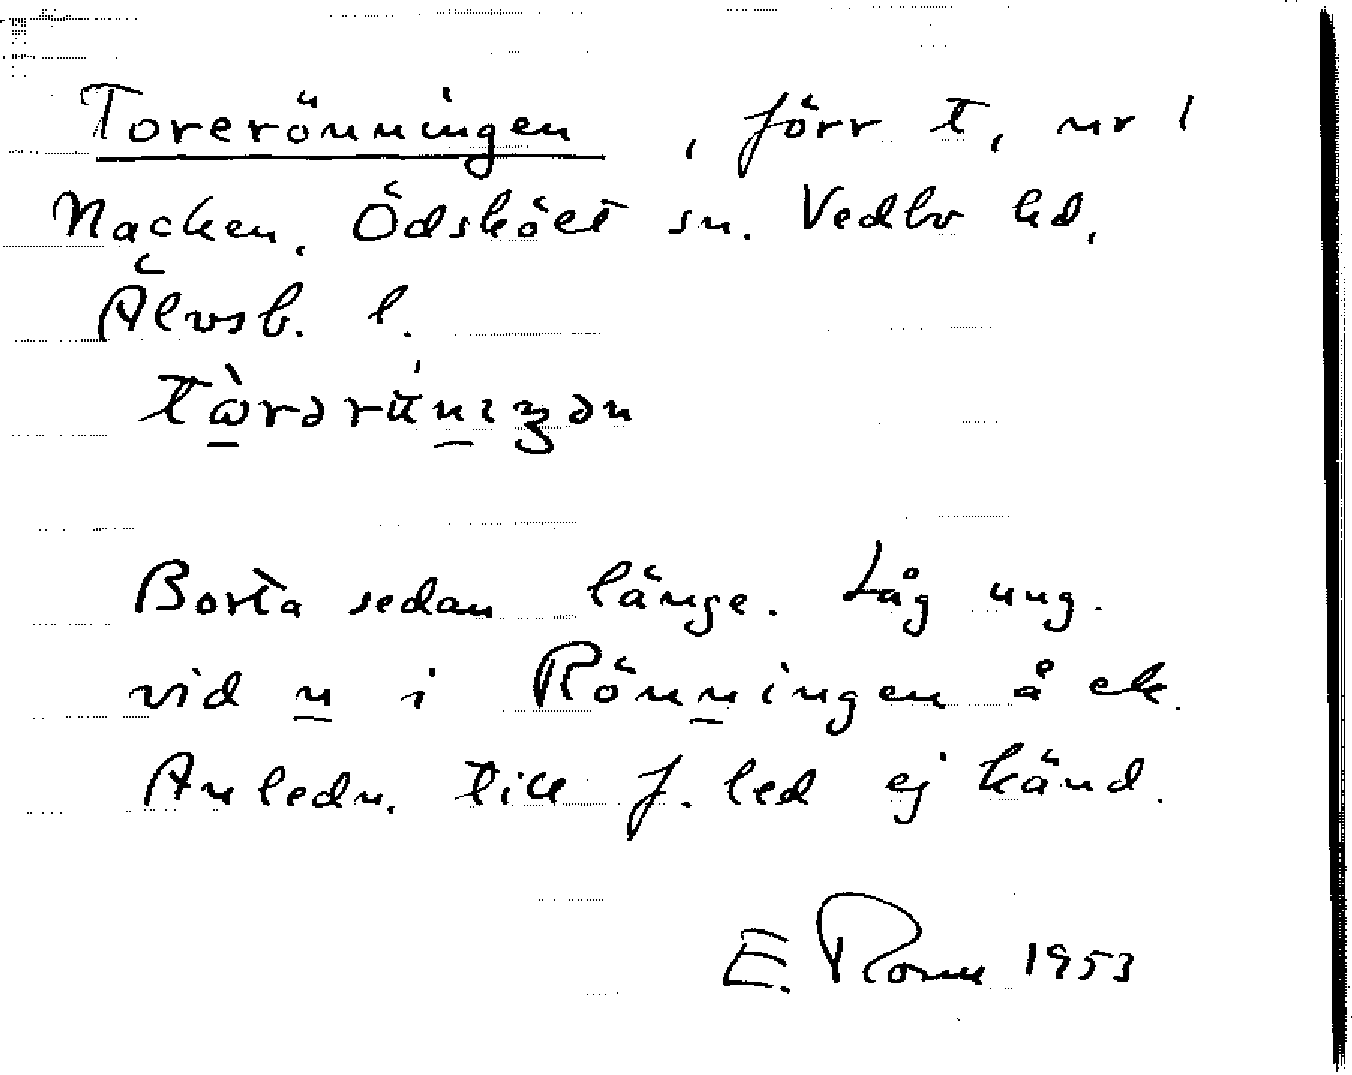 Torerönningen, förr t, nr 1
Nacken, Ödsköлt sn. Vedbo hd,
Älvsb. l.
Borta sedan länge. Låg ung.
vid n i Rönningen å ek.
Anledn. till f. led ej känd.
E. 1953